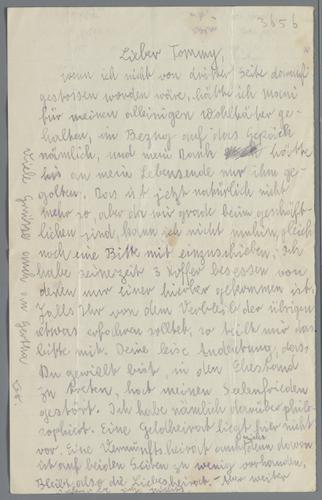 3656
Lieber Tommy,
wenn ich nicht von dritter Seite darauf
gestossen worden wäre, hätte ich Moni
für meinen alleinigen Wohltäter ge-
halten, in Bezug auf das Gepäck
nämlich, und mein Dank hätte
bis an mein Lebensende nur ihm ge-
golten. Das ist jetzt natürlich nicht
mehr so, aber da wir grade beim geschäft-
lichen sind, kann ich nicht umhin, gleich
noch eine Bitte mit einzuschieben. Ich
habe seinerzeit 3 Koffer besessen von
denen nur einer hierher gekommen ist.
Falls Ihr von dem Verbleib der übrigen
etwas erfahren solltet, so teilt mir das
bitte mit. Deine leise Andeutung, dass
Du gewillt bist, in den Ehestand
zu treten, hat meinen Seelenfrieden
gestört. Ich habe nämlich darüber philo-
sophiert. Eine Geldheirat liegt hier nicht
vor. Eine Vernunftsheirat auch nicht, denn davon
ist auf beiden Seiten zu wenig vorhanden.
Bleibt also die Liebesheirat. Nur weiter
Viele Grüsse auch an